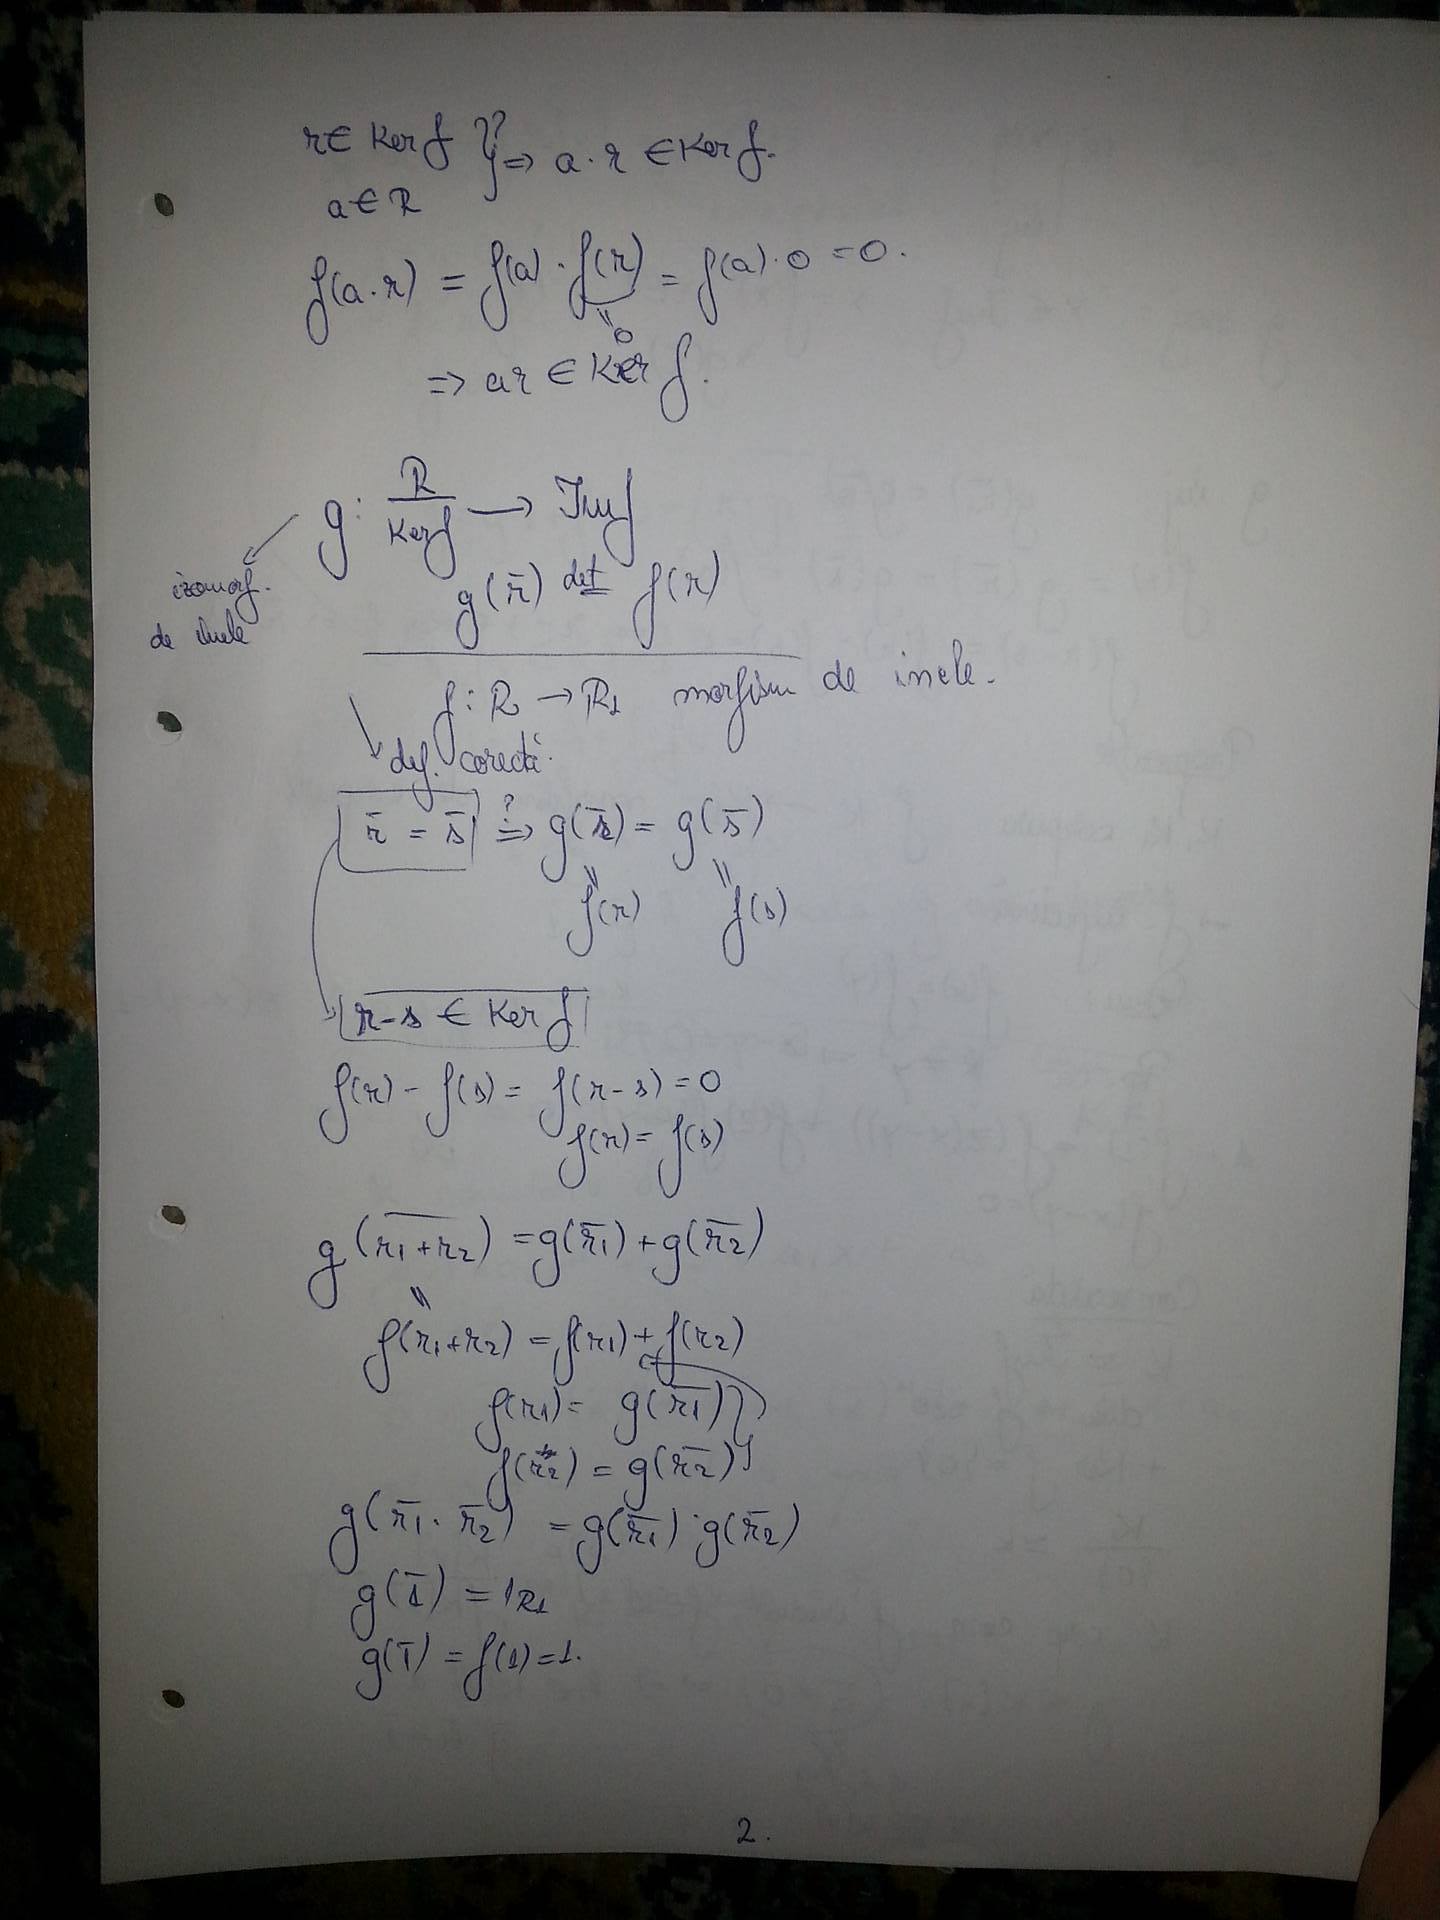 r ∈ Ker f } ?⇒ a · r ∈ Ker f.
a ∈ R
f(a·r) = f(a) · f(r) = f(a) · 0 = 0.
0
⇒ ar ∈ Ker f.
g: R/Ker f → Im f
izomorf.
de inele
g(r̄) def= f(r)
f: R → R1 morfism de inele.
def. corectă.
r̄ = s̄ ?⇒ g(r̄) = g(s̄)
f(r) f(s)
r-s ∈ Ker f
f(r) - f(s) = f(r-s) = 0
f(r) = f(s)
g(r1+r2) = g(r̄1) + g(r̄2)
f(r1+r2) = f(r1) + f(r2)
f(r1) = g(r̄1)
f(r2) = g(r̄2)
g(r̄1 · r̄2) = g(r̄1) · g(r̄2)
g(1̄) = 1R1
g(1̄) = f(1) = 1.
2.